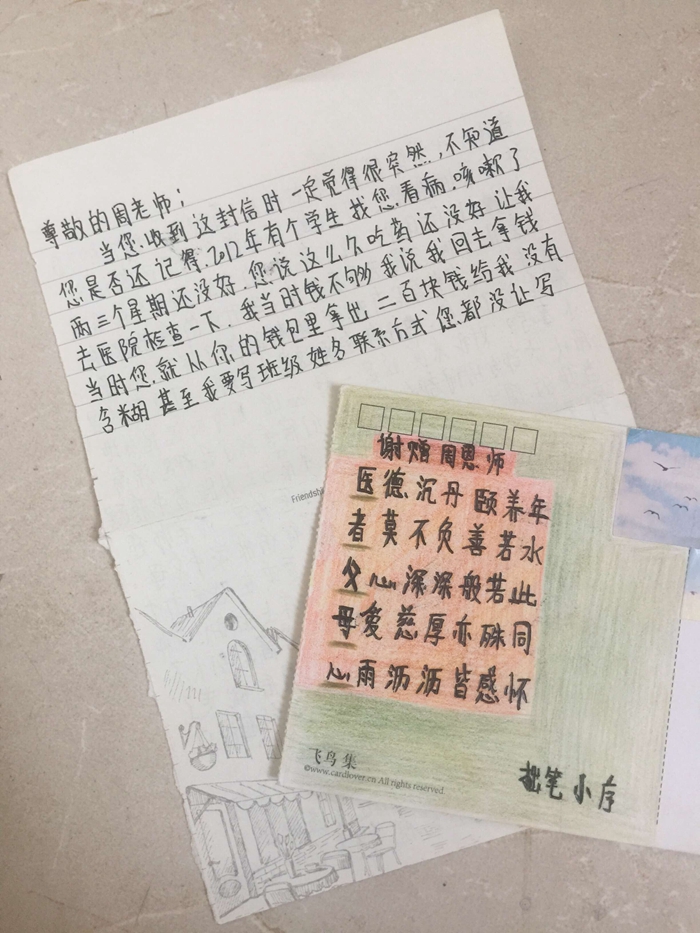 尊敬的周老师：
当您收到这封信时一定觉得很突然,不知道
您是否还记得2012年有个学生找您看病.咳嗽了
两三个星期还没好.您说这么久吃药还没好让我
去医院检查一下.我当时钱不够我说我回去拿钱
当时您就从你的钱包里拿出二百块钱给我没有
含糊甚至我要写班级姓名联系方式您都没让写
Friendshi
谢赠周恩师
医德沉丹颐养年
者莫不负善若水
父心深深般若此
母爱慈厚亦殊同
心雨沥沥皆感怀
飞鸟集
©www.cardlover.cn All rights reserved
拙笔小序